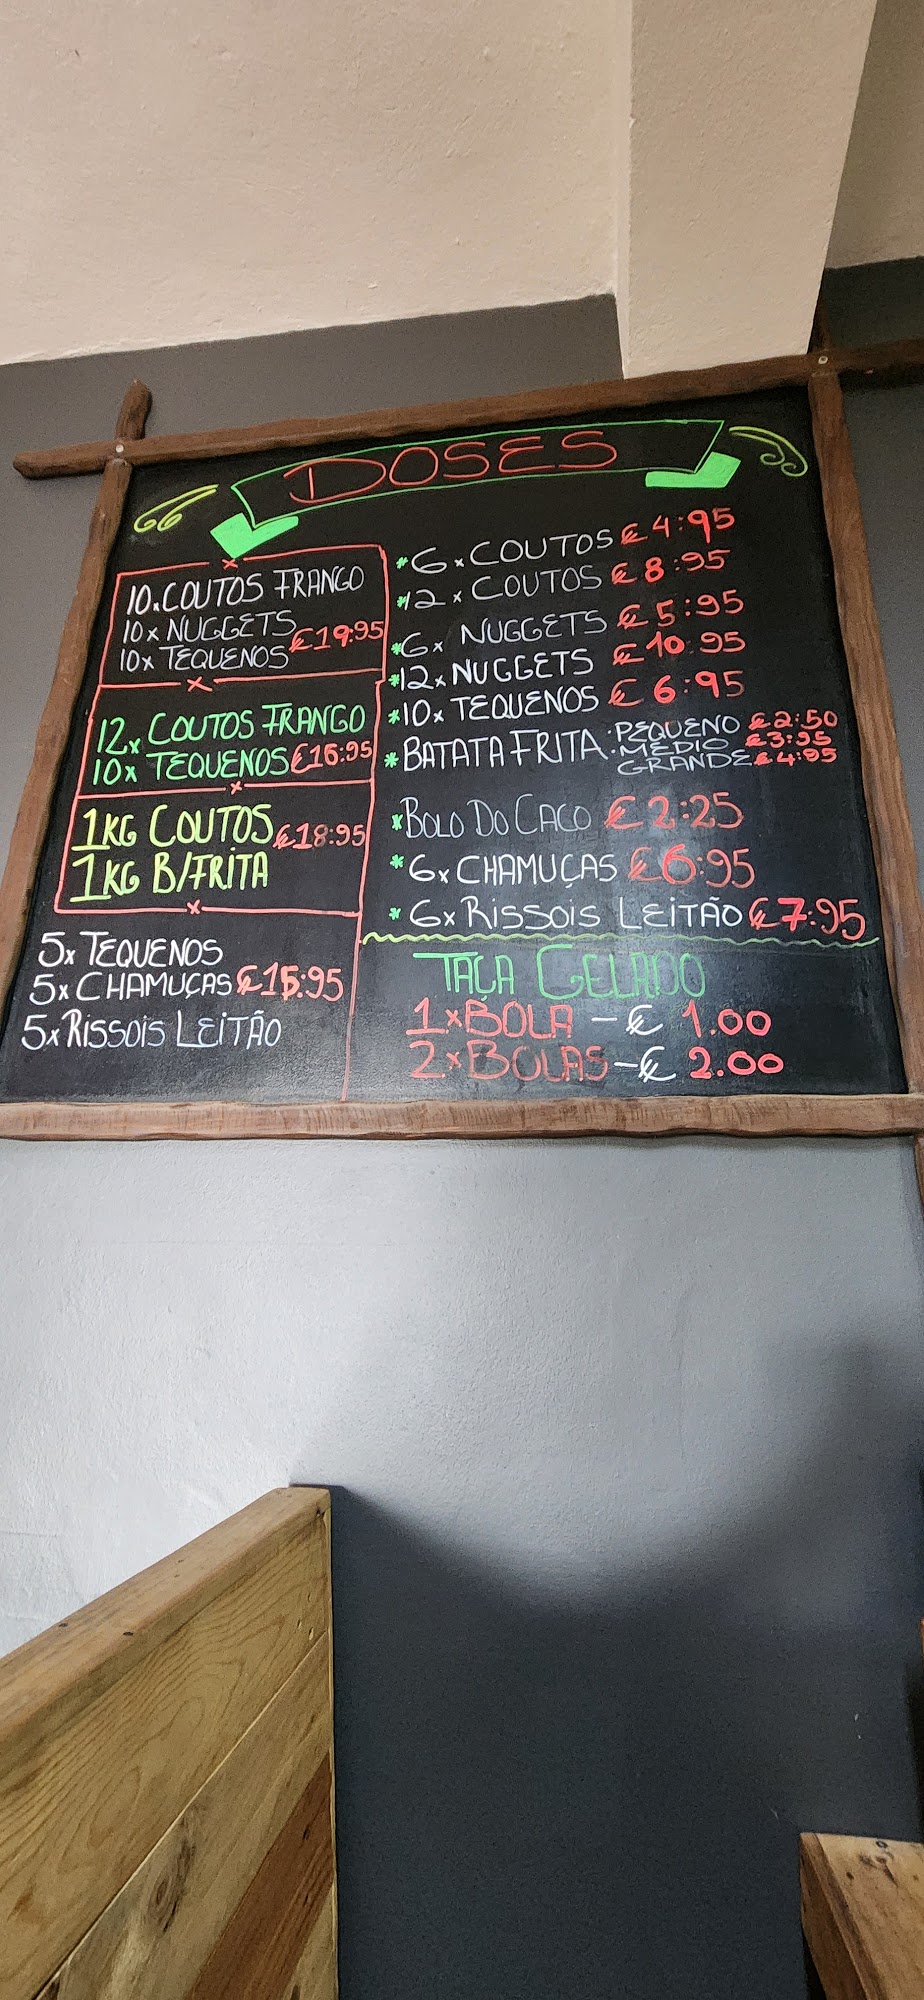 DOSES
10x COUTOS FRANGO
10x NUGGETS
10x TEQUENOS €19:95
12x COUTOS FRANGO
10x TEQUENOS €15:95
1KG COUTOS €18:95
1KG B/FRITA
5x TEQUENOS
5x CHAMUÇAS €15:95
5x RISSOIS LEITÃO
*6x COUTOS €4:95
*12x COUTOS €8:95
*6x NUGGETS €5:95
*12x NUGGETS €10:95
*10x TEQUENOS €6:95
*BATATA FRITA: PEQUENO €2:50
MEDIO €3:95
GRANDE €4:95
*BOLO DO CACO €2:25
*6x CHAMUÇAS €6:95
*6x RISSOIS LEITÃO €7:95
TAÇA GELADO
1xBOLA - € 1.00
2xBOLAS - € 2.00